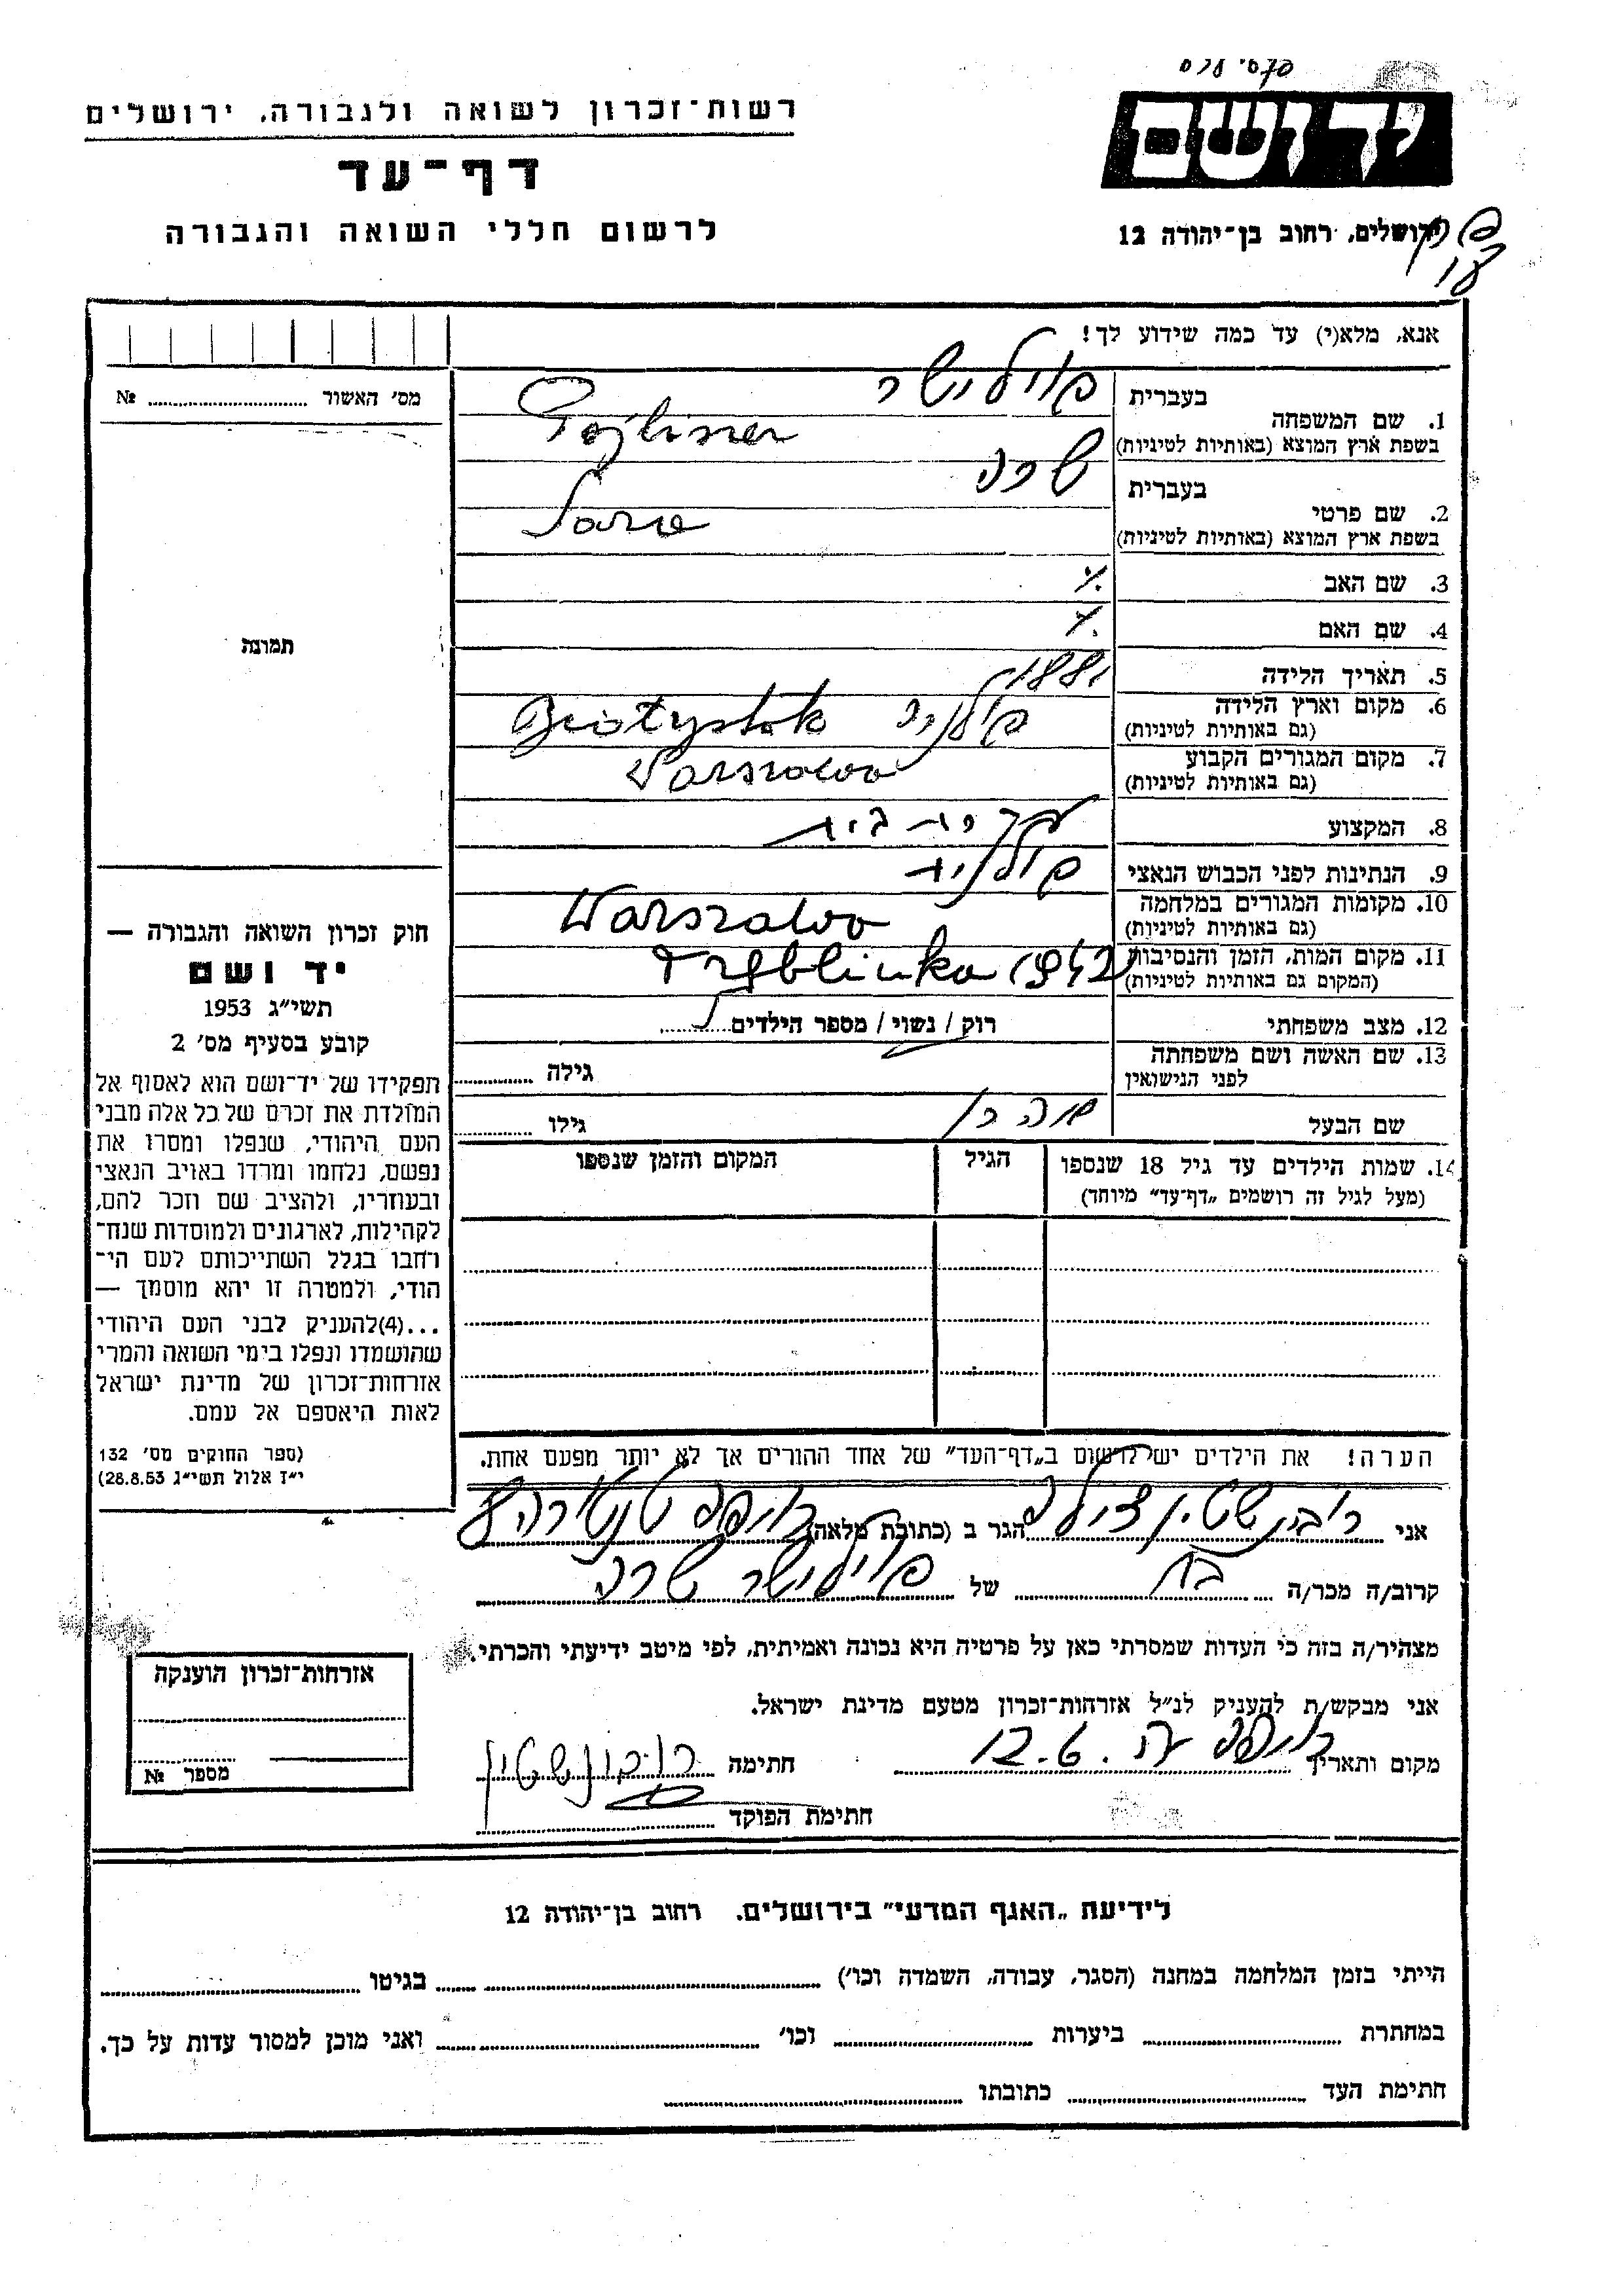 רשות־זכרון לשואה ולגבורה, ירושלים
דף־עד
לרשום חללי השואה והגבורה
יד ושם
ירושלים, רחוב בן־יהודה 12
אנא, מלא(י) עד כמה שידוע לך!
מס' האשור № 
1. שם המשפחה בעברית פוילישר
בשפת ארץ המוצא (באותיות לטיניות) Pojliszer
2. שם פרטי בעברית שרה
בשפת ארץ המוצא (באותיות לטיניות) Sara
3. שם האב ./.
4. שם האם ./.
5. תאריך הלידה 1881
6. מקום וארץ הלידה (גם באותיות לטיניות) פולניה Białystok
7. מקום המגורים הקבוע (גם באותיות לטיניות) Warszawa
8. המקצוע עקרת בית
9. הנתינות לפני הכבוש הנאצי פולנית
10. מקומות המגורים במלחמה (גם באותיות לטיניות) Warszawa
11. מקום המות, הזמן והנסיבות (המקום גם באותיות לטיניות) Treblinka 1942
12. מצב משפחתי רוק / נשוי / מספר הילדים
13. שם האשה ושם משפחתה לפני הנישואין גילה
שם הבעל גילו
14. שמות הילדים עד גיל 18 שנספו הגיל המקום והזמן שנספו
(מעל לגיל זה רושמים „דף־עד" מיוחד)
תמונה
חוק זכרון השואה והגבורה —
יד ושם
תשי״ג 1953
קובע בסעיף מס' 2
תפקידו של יד־ושם הוא לאסוף אל
המולדת את זכרם של כל אלה מבני
העם היהודי, שנפלו ומסרו את
נפשם, נלחמו ומרדו באויב הנאצי
ובעוזריו, ולהציב שם וזכר להם,
לקהילות, לארגונים ולמוסדות שנח־
רחבו בגלל השתייכותם לעם הי־
הודי, ולמטרה זו יהא מוסמך —
...(4)להעניק לבני העם היהודי
שהושמדו ונפלו בימי השואה והמרי
אזרחות־זכרון של מדינת ישראל
לאות היאספם אל עמם.
(ספר החוקים מס' 132
י״ז אלול תשי״ג 28.8.53)
הערה! את הילדים יש לרשום ב„דף־העד" של אחד ההורים אך לא יותר מפעם אחת.
אני רובינשטין צילה הגר ב (כתובת מלאה) חיפה
קרוב/ה מכר/ה בת של פוילישר שרה
מצהיר/ה בזה כי העדות שמסרתי כאן על פרטיה היא נכונה ואמיתית, לפי מיטב ידיעתי והכרתי.
אני מבקש/ת להעניק לנ״ל אזרחות־זכרון מטעם מדינת ישראל.
מקום ותאריך חיפה 12.6. חתימה רובינשטין
חתימת הפוקד
אזרחות־זכרון הוענקה
מספר №
לידיעת „האגף המדעי" בירושלים, רחוב בן־יהודה 12
הייתי בזמן המלחמה במחנה (הסגר, עבודה, השמדה וכו') בגיטו
במחתרת ביערות וכו' ואני מוכן למסור עדות על כך.
חתימת העד כתובתו